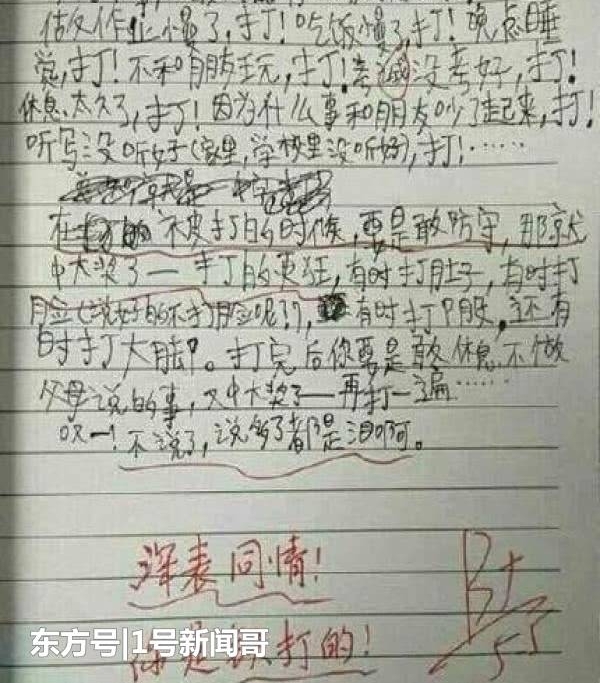 做作业慢了,打!吃饭慢了,打!晚点睡
觉,打!不和朋友玩,打!考试没考好,打!
休息太久了,打!因为什么事和朋友吵了起来,打!
听写没听好(家里,学校里没听好),打!……
在被打的时候,要是敢防守,那就
中大奖了——打的更狂,有时打肚子,有时打
脸(说好的不打脸呢?),有时打P股,还有
时打大腿。打完后你要是敢休息,不做
父母说的事,又中大奖了——再打一遍……
哎!不说了,说多了都是泪啊。
深表同情!
你是 打的!
B+
东方号|1号新闻哥